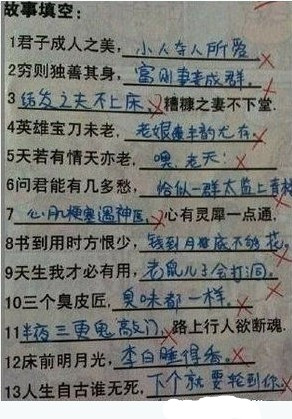 故事填空：
1君子成人之美，小人夺人所爱
2穷则独善其身，富则妻妾成群。
3结发之夫不上床，糟糠之妻不下堂.
4英雄宝刀未老，老娘風韵尤存
5天若有情天亦老，嘿，老天：
6问君能有几多愁，恰似一群太监上青楼
7心肌梗塞遇神医，心有灵犀一点通.
8书到用时方恨少，钱到月底不够花。
9天生我才必有用，老鼠儿子会打洞。
10三个臭皮匠，臭味都一样。
11半夜三更鬼敲门，路上行人欲断魂.
12床前明月光，李白睡得香。
13人生自古谁无死，下个就要轮到你